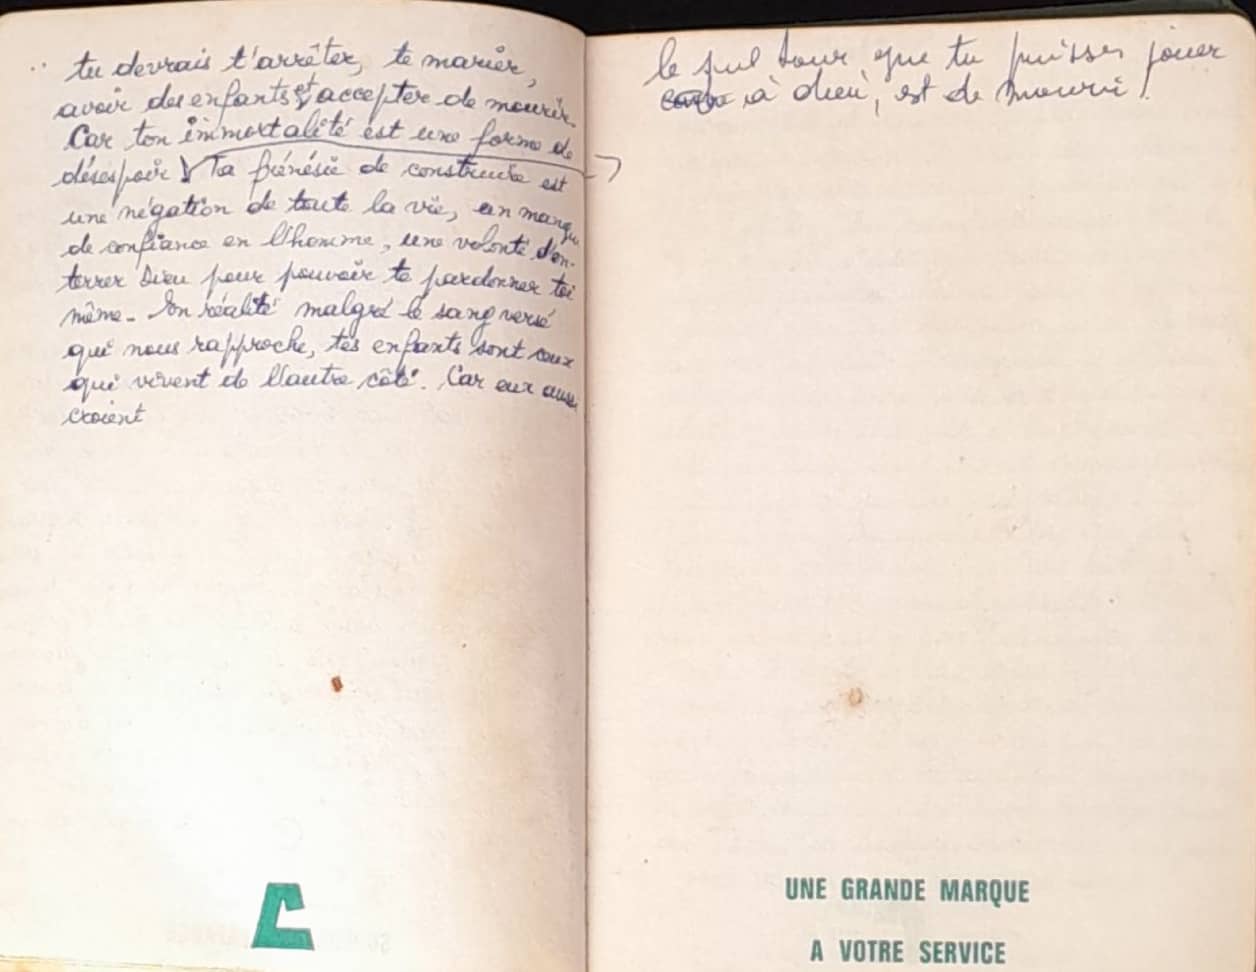 .. tu devrais t'arrêter, te marier,
avoir des enfants et accepter de mourir.
Car ton immortalité est une forme de
désespoir Ta frénésie de construire est
une négation de toute la vie, un manque
de confiance en l'homme, une volonté d'en-
terrer Dieu pour pouvoir te pardonner toi
même. En réalité malgré le sang versé
qui nous rapproche, tes enfants sont ceux
qui vivent de l'autre côté. Car eux aussi
croient
le seul tour que tu puisses jouer
à dieu, est de mourir!
UNE GRANDE MARQUE
A VOTRE SERVICE